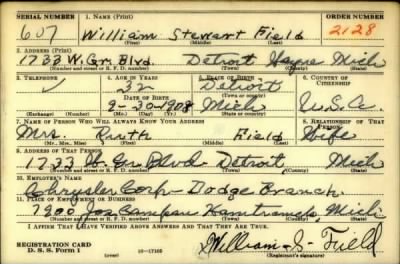 SERIAL NUMBER 1. NAME (Print) ORDER NUMBER
607 William Stewart Field 2128
(First) (Middle) (Last)
2. ADDRESS (Print)
1733 W. Gr. Blvd. Detroit Wayne Mich
(Number and street or R. F. D. number) (Town) (County) (State)
3. TELEPHONE 4. AGE IN YEARS 5. PLACE OF BIRTH 6. COUNTRY OF CITIZENSHIP
32 Detroit
DATE OF BIRTH (Town or county)
9-30-1908 Mich U.S.A.
(Exchange) (Number) (Mo.) (Day) (Yr.) (State or country)
7. NAME OF PERSON WHO WILL ALWAYS KNOW YOUR ADDRESS 8. RELATIONSHIP OF THAT PERSON
Mrs. Ruth Field Wife
(Mr., Mrs., Miss) (First) (Middle) (Last)
9. ADDRESS OF THAT PERSON
1733 W. Gr. Blvd. Detroit Mich
(Number and street or R. F. D. number) (Town) (County) (State)
10. EMPLOYER'S NAME
Chrysler Corp - Dodge Branch.
11. PLACE OF EMPLOYMENT OR BUSINESS
7900 Jos Campau Hamtramck, Mich
(Number and street or R. F. D. number) (Town) (County) (State)
I AFFIRM THAT I HAVE VERIFIED ABOVE ANSWERS AND THAT THEY ARE TRUE.
REGISTRATION CARD
D. S. S. Form 1 (over) 16-17105 William S. Field
(Registrant's signature)